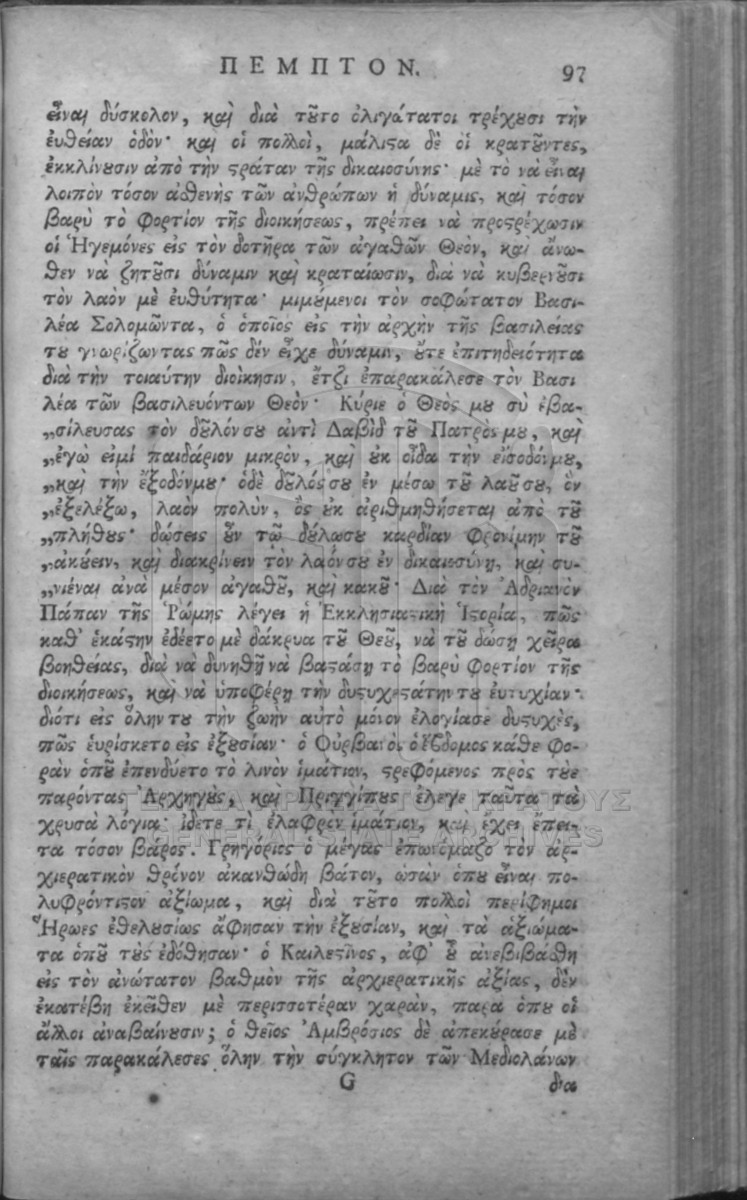 ΠΕΜΠΤΟΝ. 97
εἶναι δύσκολον, καὶ διὰ τȣ͂το ὀλιγάτατοι τρέχȣσι τὴν
ἐυθείαν ὁδόν· καὶ οἱ πολλοὶ, μάλιϛα δὲ οἱ κρατȣ͂ντες,
ἐκκλίνȣσιν ἀπὸ τὴν ϛράταν τῆς δικαιοσύνης· μὲ τὸ νὰ εἶναι
λοιπὸν τόσον ἀσθενὴς τῶν ἀνθρώπων ἡ δύναμις, καὶ τόσον
βαρὺ τὸ φορτίον τῆς διοικήσεως, πρέπει νὰ προϛρέχωσιν
οἱ Ἡγεμόνες εἰς τὸν δοτῆρα τῶν ἀγαθῶν Θεὸν, καὶ ἄνω-
θεν νὰ ζητȣ͂σι δύναμιν καὶ κραταίωσιν, διὰ νὰ κυβερνȣ͂σι
τὸν λαὸν μὲ ἐυθύτητα· μιμȣ́μενοι τὸν σοφώτατον Βασι-
λέα Σολομῶντα, ὁ ὁποῖος εἰς τὴν ἀρχὴν τῆς βασιλείας
τȣ γνωρίζωντας πῶς δὲν εἶχε δύναμιν, ȣ̓́τε ἐπιτηδειότητα
διὰ τὴν τοιαύτην διοίκησιν, ἔτζι ἐπαρακάλεσε τὸν Βασι
λέα τῶν βασιλευόντων Θεὸν· Κύριε ὁ Θεὸς μȣ σὺ ἐβα-
„σίλευσας τὸν δȣ͂λόν σȣ ἀντὶ Δαβὶδ τȣ͂ Πατρὸς μȣ, καὶ
„ἐγὼ εἰμί παιδάριον μικρὸν, καὶ ȣκ οἶδα τὴν εἰσοδόν μȣ,
„καὶ τὴν ἔξοδόνμȣ· ὁδὲ δȣ͂λός σȣ ἐν μέσω τȣ͂ λαȣ͂σȣ, ὃν
„ἐξελέξω, λαὸν πολὺν, ὃς ȣ̓κ ἀριθμηθήσεται ἀπὸ τȣ͂
„πλήθȣς· δώσεις ȣ̓͂ν τῶ δȣ́λωσȣ καρδίαν φρονίμην τȣ͂
„ἀκȣ́ειν, καὶ διακρίνειν τὸν λαόνσȣ ἐν δικαιοσύνῃ, καὶ συ-
„νιέναι ἀνὰ μέσον ἀγαθȣ͂, καὶ κακȣ͂· Διὰ τὸν Ἀδριανὸν
Πάπαν τῆς Ῥώμης λέγει ἡ Ἐκκλησιαϛικὴ Ἱϛορία, πῶς
καθ' ἑκάϛην ἐδέετο μὲ δάκρυα τȣ͂ Θεȣ͂, νὰ τȣ͂ δώσῃ χεῖρα
βοηθείας, διὰ νὰ δυνηθῇ νὰ βαϛάσῃ τὸ βαρὺ φορτίον τῆς
διοικήσεως, καὶ νὰ ὑποφέρῃ τὴν δυϛυχεϛάτην τȣ ἐυτυχίαν·
διότι εἰς ὅλην τȣ τὴν ζωὴν αὐτὸ μόνον ἐλογίασε δυϛυχὲς,
πῶς ἑυρίσκετο εἰς ἐξȣσίαν· ὁ Οὐρβανὸς ὁ ἕβδομος κάθε φο-
ρὰν ὁπȣ͂ ἐπενδύετο τὸ λινὸν ἱμάτιον, ϛρεφόμενος πρὸς τȣ̀ς
παρόντας Ἀρχηγȣ̀ς, καὶ Πριγγίπȣς ἔλεγε ταῦτα τὰ
χρυσᾶ λόγια· ἰδετε τὶ ἐλαφρὸν ἱμάτιον, καὶ ἔχει ἔπει-
τα τόσον βάρος. Γρηγόριος ὁ μέγας ἐπωνόμαζε τὸν ἀρ-
χιερατικὸν θρόνον ἀκανθώδη βάτον, ὡσὰν ὁπȣ εἶναι πο-
λυφρόντιϛον ἀξίωμα, καὶ διὰ τȣ͂το πολλοὶ περίφημοι
Ἥρωες ἐθελȣσίως ἄφησαν τὴν ἐξȣσίαν, καὶ τὰ ἀξιώμα-
τα ὁπȣ͂ τȣ̀ς ἐδόθησαν· ὁ Καιλεϛῖνος, ἀφ' ȣ̔͂ ἀνεβιβάσθη
εἰς τὸν ἀνώτατον βαθμὸν τῆς ἀρχιερατικῆς ἀξίας, δὲν
ἐκατέβη ἐκεῖθεν μὲ περισσοτέραν χαρὰν, παρα ὁπȣ οἱ
ἄλλοι ἀναβαίνȣσιν; ὁ θεῖος Ἀμβρόσιος δὲ ἀπεκȣ́ρασε μὲ
ταῖς παρακάλεσες ὅλην τὴν σύγκλητον τῶν Μεδιολάνων
G δια
ΓΕΝΙΚΑ ΑΡΧΕΙΑ ΤΟΥ ΚΡΑΤΟΥΣ
GENERAL STATE ARCHIVES